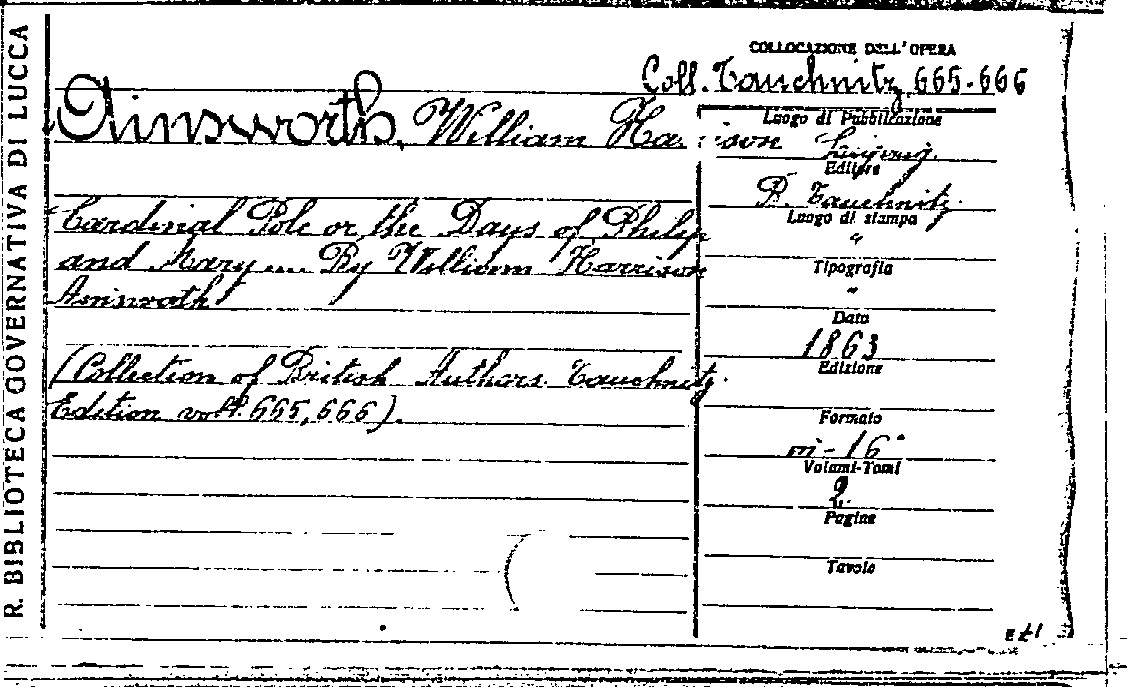 R. BIBLIOTECA GOVERNATIVA DI LUCCA
COLLOCAZIONE DELL'OPERA
Coll. Tauchnitz 665-666
Ainsworth, William Harrison
Cardinal Pole or the Days of Philip
and Mary .... By William Harrison
Ainsworth
(Collection of British Authors. Tauchnitz
Edition voll. 665, 666).
Luogo di Pubblicazione
Leipzig
Editore
B. Tauchnitz
Luogo di stampa
"
Tipografia
"
Data
1863
Edizione
Formato
in-16°
Volumi-Tomi
2.
Pagine
Tavole